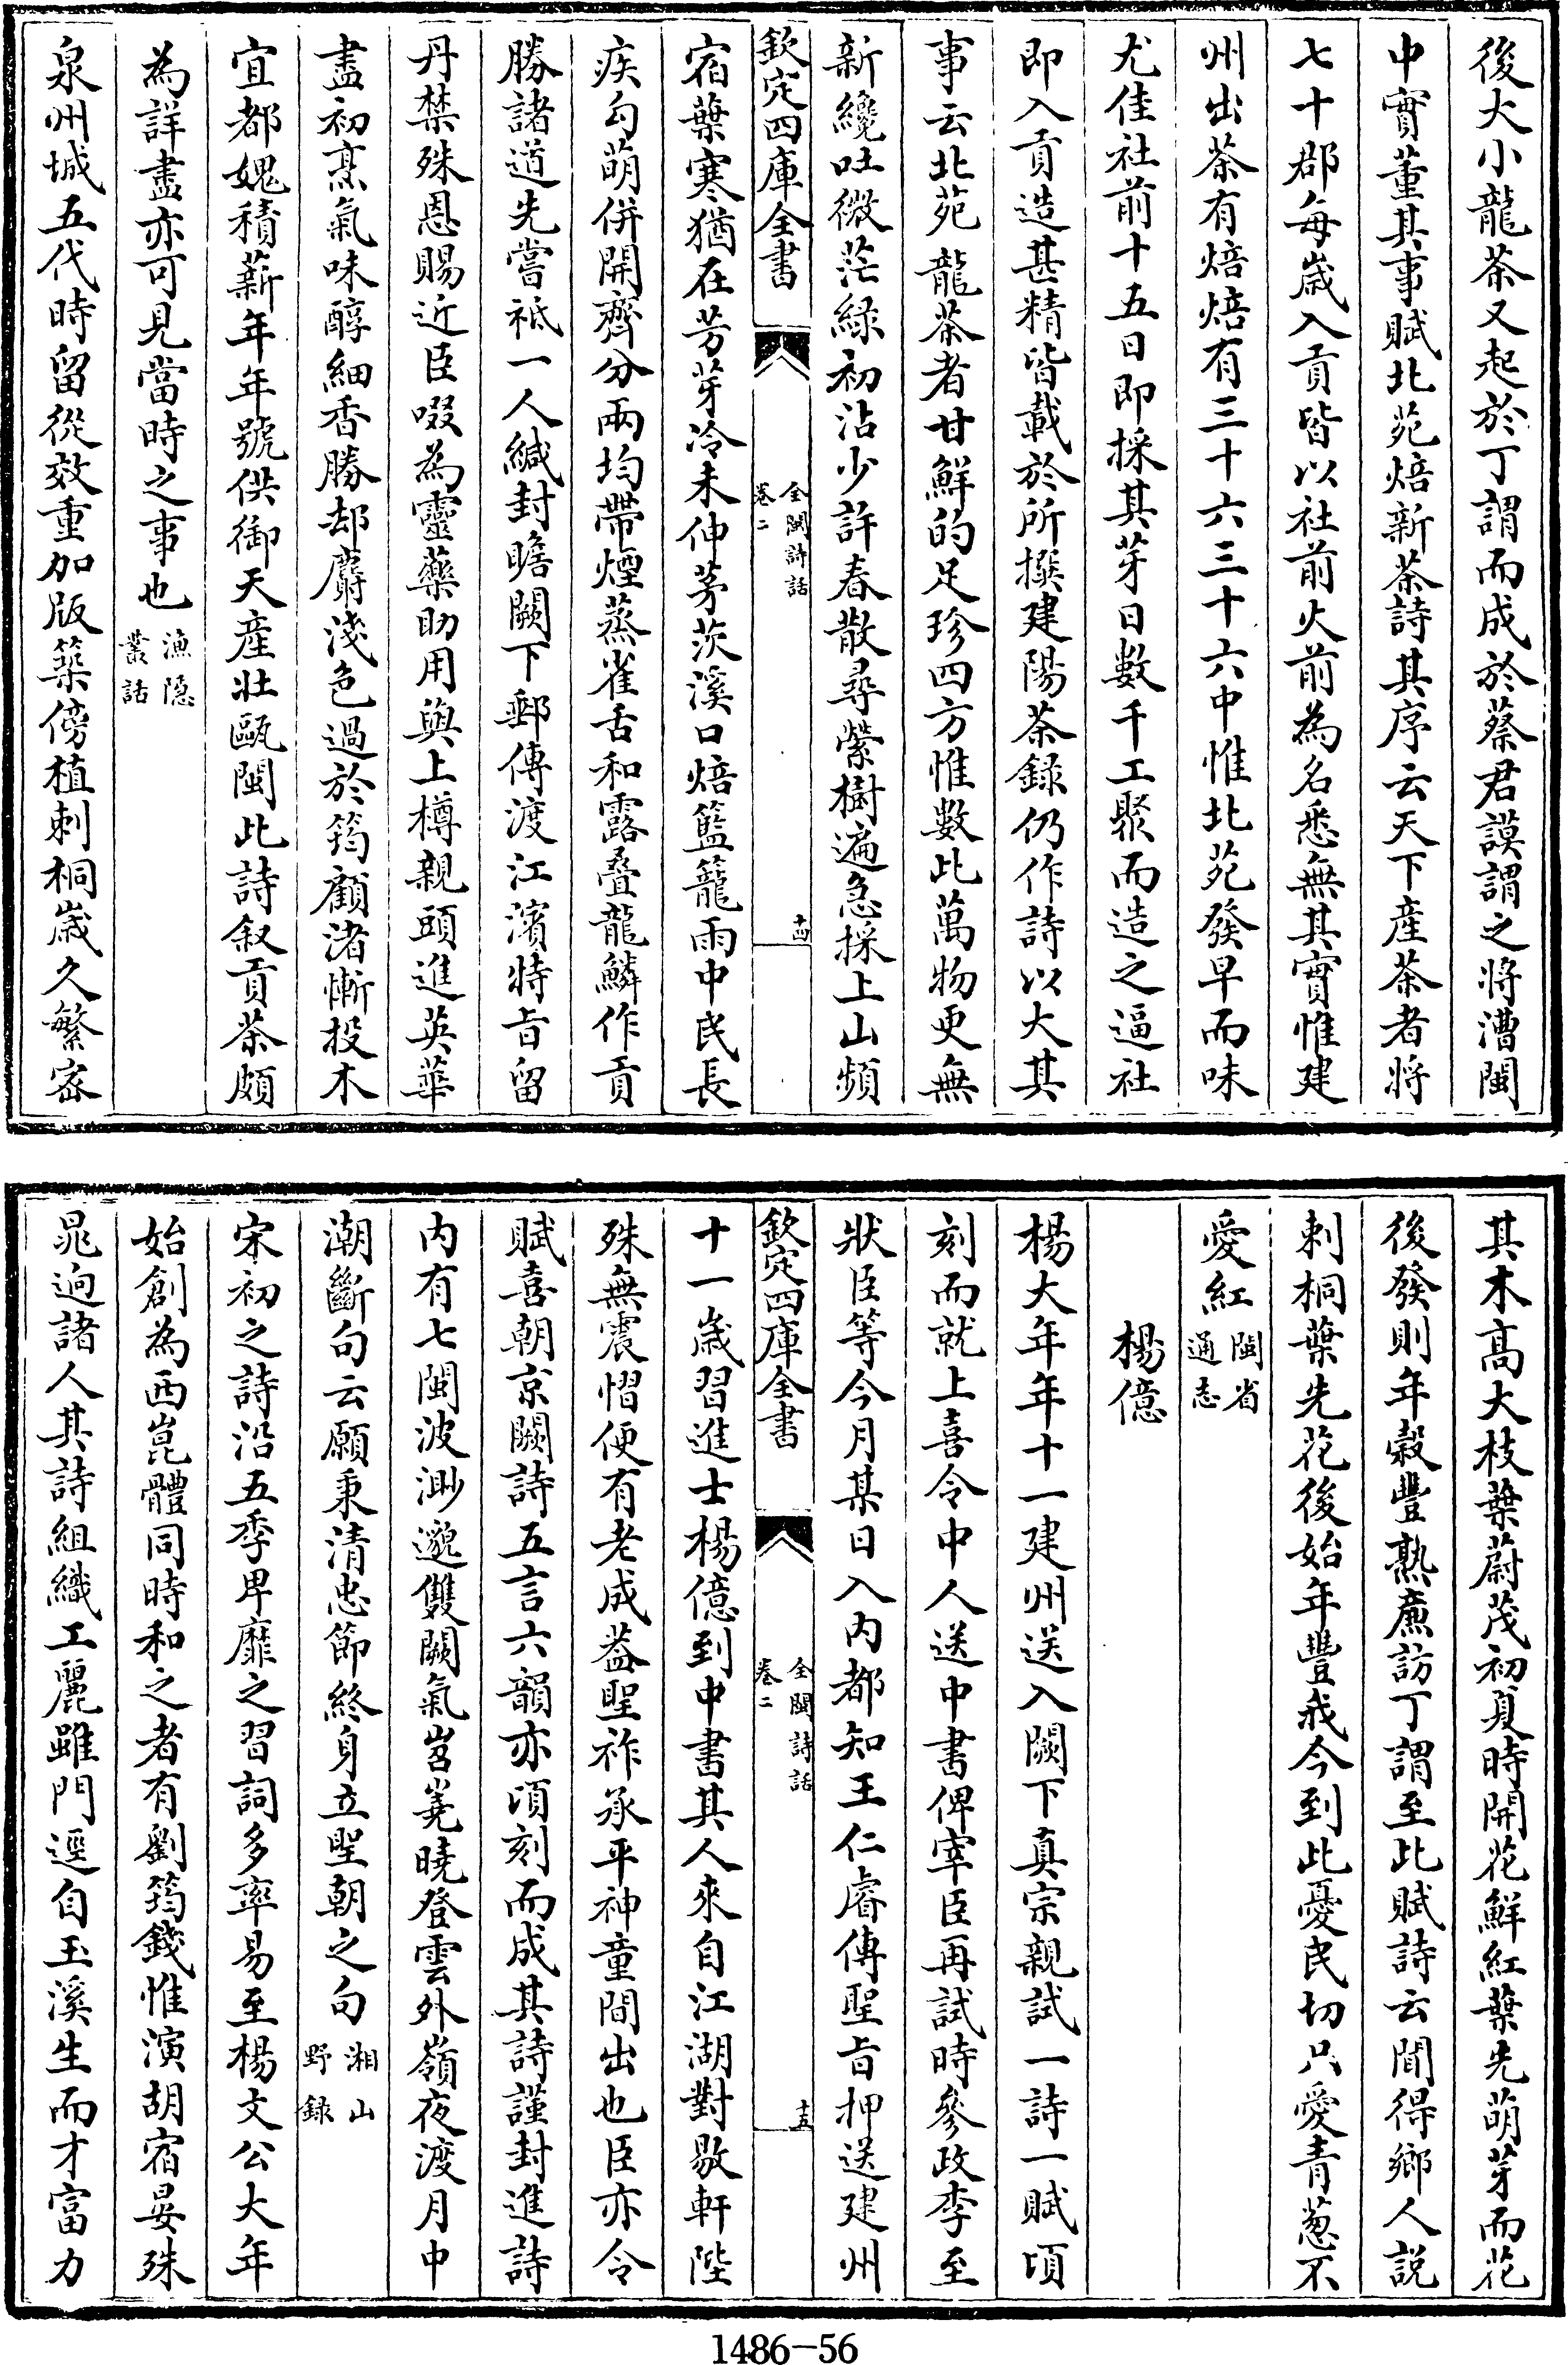 後大小龍茶又起於丁謂而成於蔡君謨謂之將漕閩
中實董其事賦北苑焙新茶詩其序云天下產茶者將
七十郡每歲入貢皆以社前火前為名悉無其實惟建
州出茶有焙焙有三十六三十六中惟北苑發早而味
尤佳社前十五日即採其芽日數千工聚而造之逼社
即入貢造甚精皆載於所撰建陽茶錄仍作詩以大其
事云北苑龍茶者甘鮮的足珍四方惟數此萬物更無
新纔吐微茫綠初沾少許春散尋縈樹遍急採上山頻
欽定四庫全書
全閩詩話
卷二
十四
宿葉寒猶在芳芽冷未伸茅茨溪口焙籃籠雨中民長
疾勾萌併開齊分兩均帶煙蒸雀舌和露疊龍鱗作貢
勝諸道先嘗祇一人緘封瞻闕下郵傳渡江濱特旨留
丹禁殊恩賜近臣啜為靈藥助用與上樽親頭進英華
盡初烹氣味醇細香勝却麝淺色過於筠顧渚慚投木
宜都媿積薪年年號供御天產壯甌閩此詩叙貢茶頗
為詳盡亦可見當時之事也漁隱
叢話
泉州城五代時留從效重加版築傍植刺桐歲久繁密
其木高大枝葉蔚茂初夏時開花鮮紅葉先萌芽而花
後發則年穀豐熟廉訪丁謂至此賦詩云聞得鄉人說
刺桐葉先花後始年豐我今到此憂民切只愛青葱不
愛紅閩省
通志
楊億
楊大年年十一建州送入闕下真宗親試一詩一賦頃
刻而就上喜令中人送中書俾宰臣再試時參政李至
狀臣等今月某日入内都知王仁睿傳聖旨押送建州
欽定四庫全書
全閩詩話
卷二
十五
十一歲習進士楊億到中書其人來自江湖對敭軒陛
殊無震慴便有老成蓋聖祚承平神童間出也臣亦令
賦喜朝京闕詩五言六韻亦頃刻而成其詩謹封進詩
内有七閩波渺邈雙闕氣岧嶤曉登雲外嶺夜渡月中
潮斷句云願秉清忠節終身立聖朝之句湘山
野録
宋初之詩沿五季卑靡之習詞多率易至楊文公大年
始創為西崑體同時和之者有劉筠錢惟演胡宿晏殊
晁迥諸人其詩組織工麗雖門逕自玉溪生而才富力
1486-56